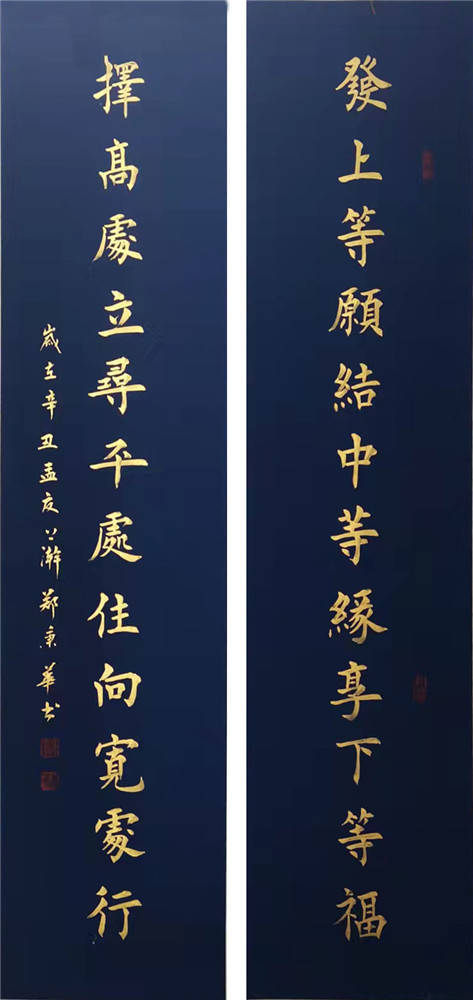 發上等願結中等緣享下等福
擇高處立尋平處住向寬處行
歲在辛丑孟夏上澣鄭康華书